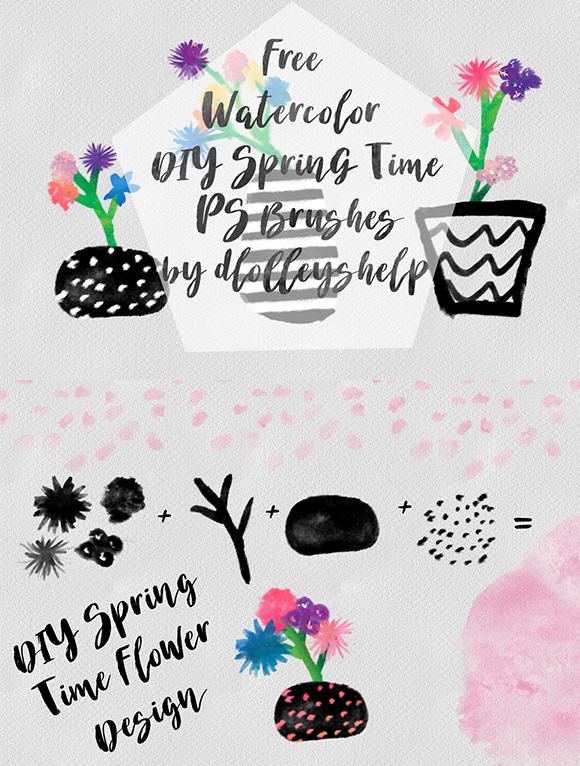 Free
Watercolor
DIY Spring Time
PS Brushes
by dlolleyshelp
+ + + =
DIY Spring
Time Flower
Design